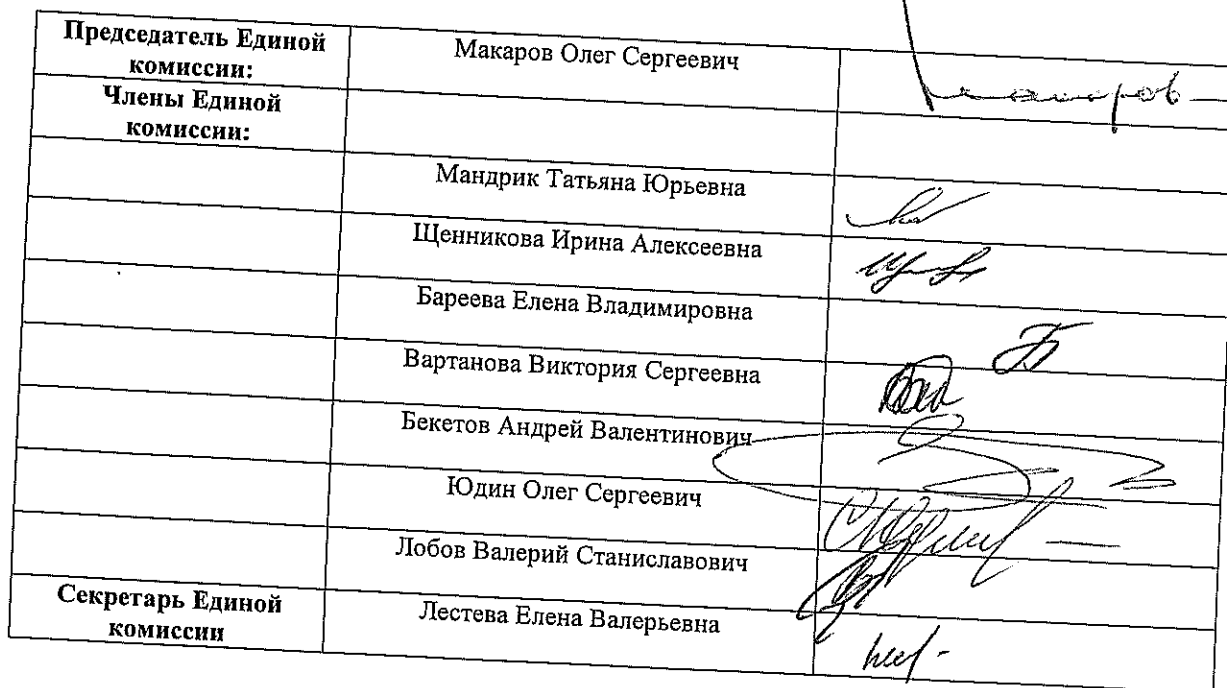 Председатель Единой
комиссии:
Макаров Олег Сергеевич
Члены Единой
комиссии:
Мандрик Татьяна Юрьевна
Щенникова Ирина Алексеевна
Бареева Елена Владимировна
Вартанова Виктория Сергеевна
Бекетов Андрей Валентинович
Юдин Олег Сергеевич
Лобов Валерий Станиславович
Секретарь Единой
комиссии
Лестева Елена Валерьевна